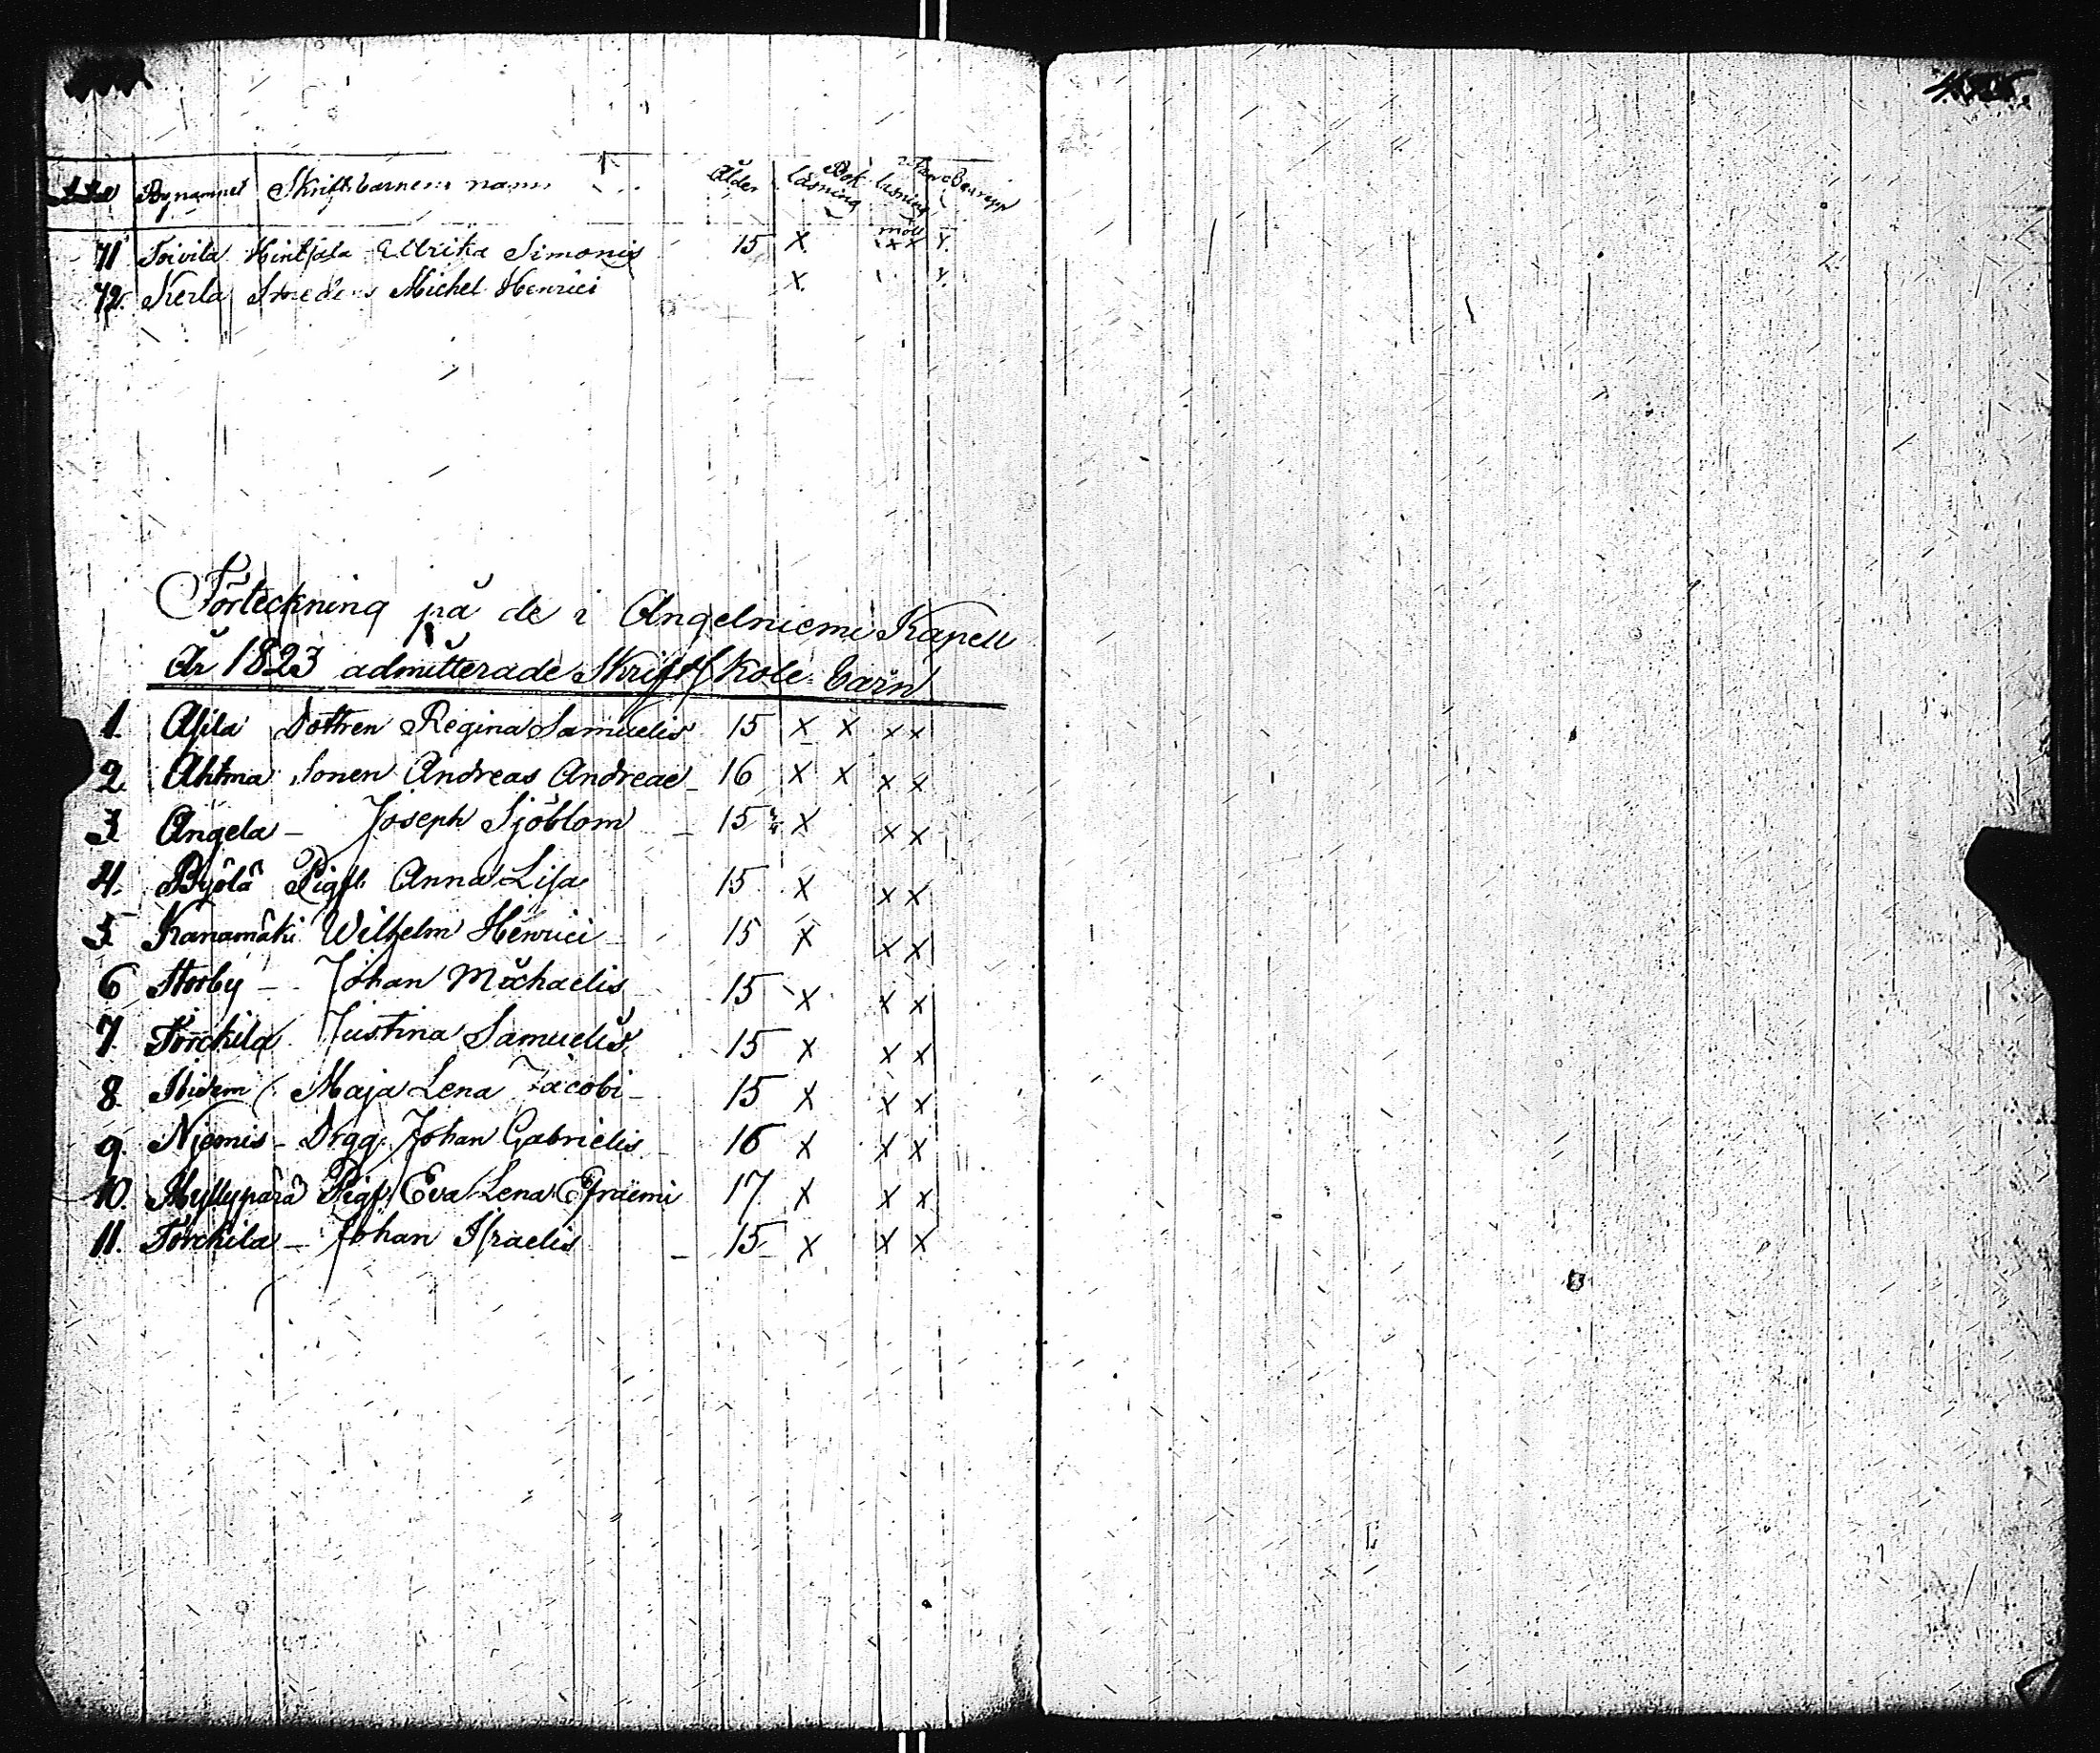 Bynamnet Skriftbarnens namn Ålder Bok läsning läsning Begrepp
71 Toivila Ulrika Simonis 15 X. XX X.
72. Kerla Michel Henrici X. X.
Förteckning på de i Angelniemi Kapell
År 1823 admitterade Skriftskole barn
1. Asila Dottren Regina Samuelis 15 X X X X
2. Ahtma Sonen Andreas Andreae 16 X X X X
3. Angela Joseph Sjöblom 15 X X X
4. Pyölä Pig. Anna Lisa 15 X X X
5. Kanamäki Wilhelm Henrici 15 X X X
6 Storby Johan Michaelis 15 X X X
7. Torckila Justina Samuelis 15 X X X
8. Ibidem Maja Lena Jacobi 15 X X X
9. Niemis Drgg. Johan Gabrielis 16 X X X
10. Myllyperä Pig. Eva Lena Efraemi 17 X X X
11. Torckila Johan Israelis 15 X X X